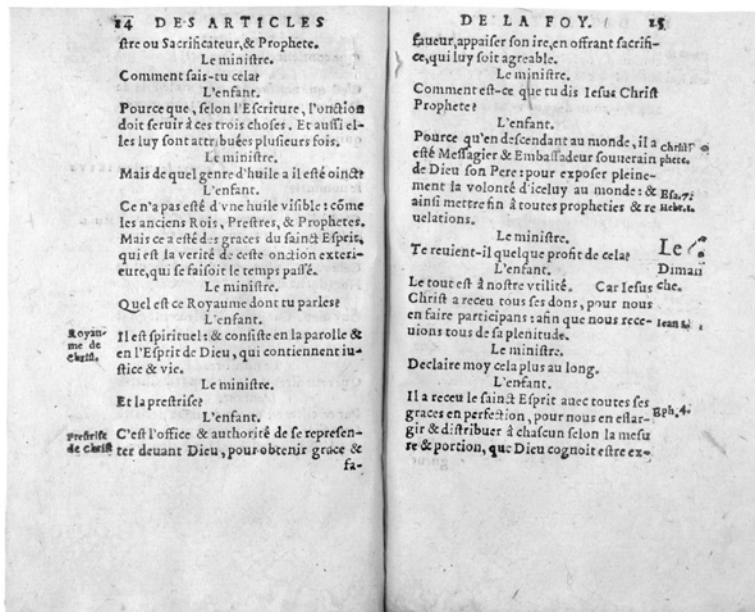 14 DES ARTICLES
stre ou Sacrificateur, & Prophete.
Le ministre.
Comment sais-tu cela?
L'enfant.
Pource que, selon l'Escriture, l'onction
doit seruir à ces trois choses. Et aussi el-
les luy sont attribuées plusieurs fois.
Le ministre.
Mais de quel genre d'huile a il esté oinct?
L'enfant.
Ce n'a pas esté d'vne huile visible: cõme
les anciens Rois, Prestres, & Prophetes.
Mais ce a esté des graces du sainct Esprit,
qui est la verité de ceste onction exteri-
eure, qui se faisoit le temps passé.
Le ministre.
Quel est ce Royaume dont tu parles?
L'enfant.
Royau-
me de
Christ.
Il est spirituel: & consiste en la parolle &
en l'Esprit de Dieu, qui contiennent iu-
stice & vie.
Le ministre.
Et la prestrise?
L'enfant.
Prestrise
de Christ
C'est l'office & authorité de se represen-
ter deuant Dieu, pour obtenir grace &
fa-
DE LA FOY. 15
faueur, appaiser son ire, en offrant sacrifi-
ce, qui luy soit agreable.
Le ministre.
Comment est-ce que tu dis Iesus Christ
Prophete?
L'enfant.
Pource qu'en descendant au monde, il a
esté Messagier & Embassadeur souuerain
de Dieu son Pere: pour exposer pleine-
ment la volonté d'iceluy au monde: &
ainsi mettre fin à toutes propheties & re
uelations.
Christ
phete.
Esa. 7.
Hebr. 1.
Le ministre.
Te reuient-il quelque profit de cela?
L'enfant.
Le
Diman
che.
Le tout est à nostre vtilité. Car Iesus
Christ a receu tous ses dons, pour nous
en faire participans: afin que nous rece-
uions tous de sa plenitude.
Iean
Le ministre.
Declaire moy cela plus au long.
L'enfant.
Il a receu le sainct Esprit auec toutes ses
graces en perfection, pour nous en eslar-
gir & distribuer à chascun selon la mesu
re & portion, que Dieu cognoit estre ex-
Eph. 4.